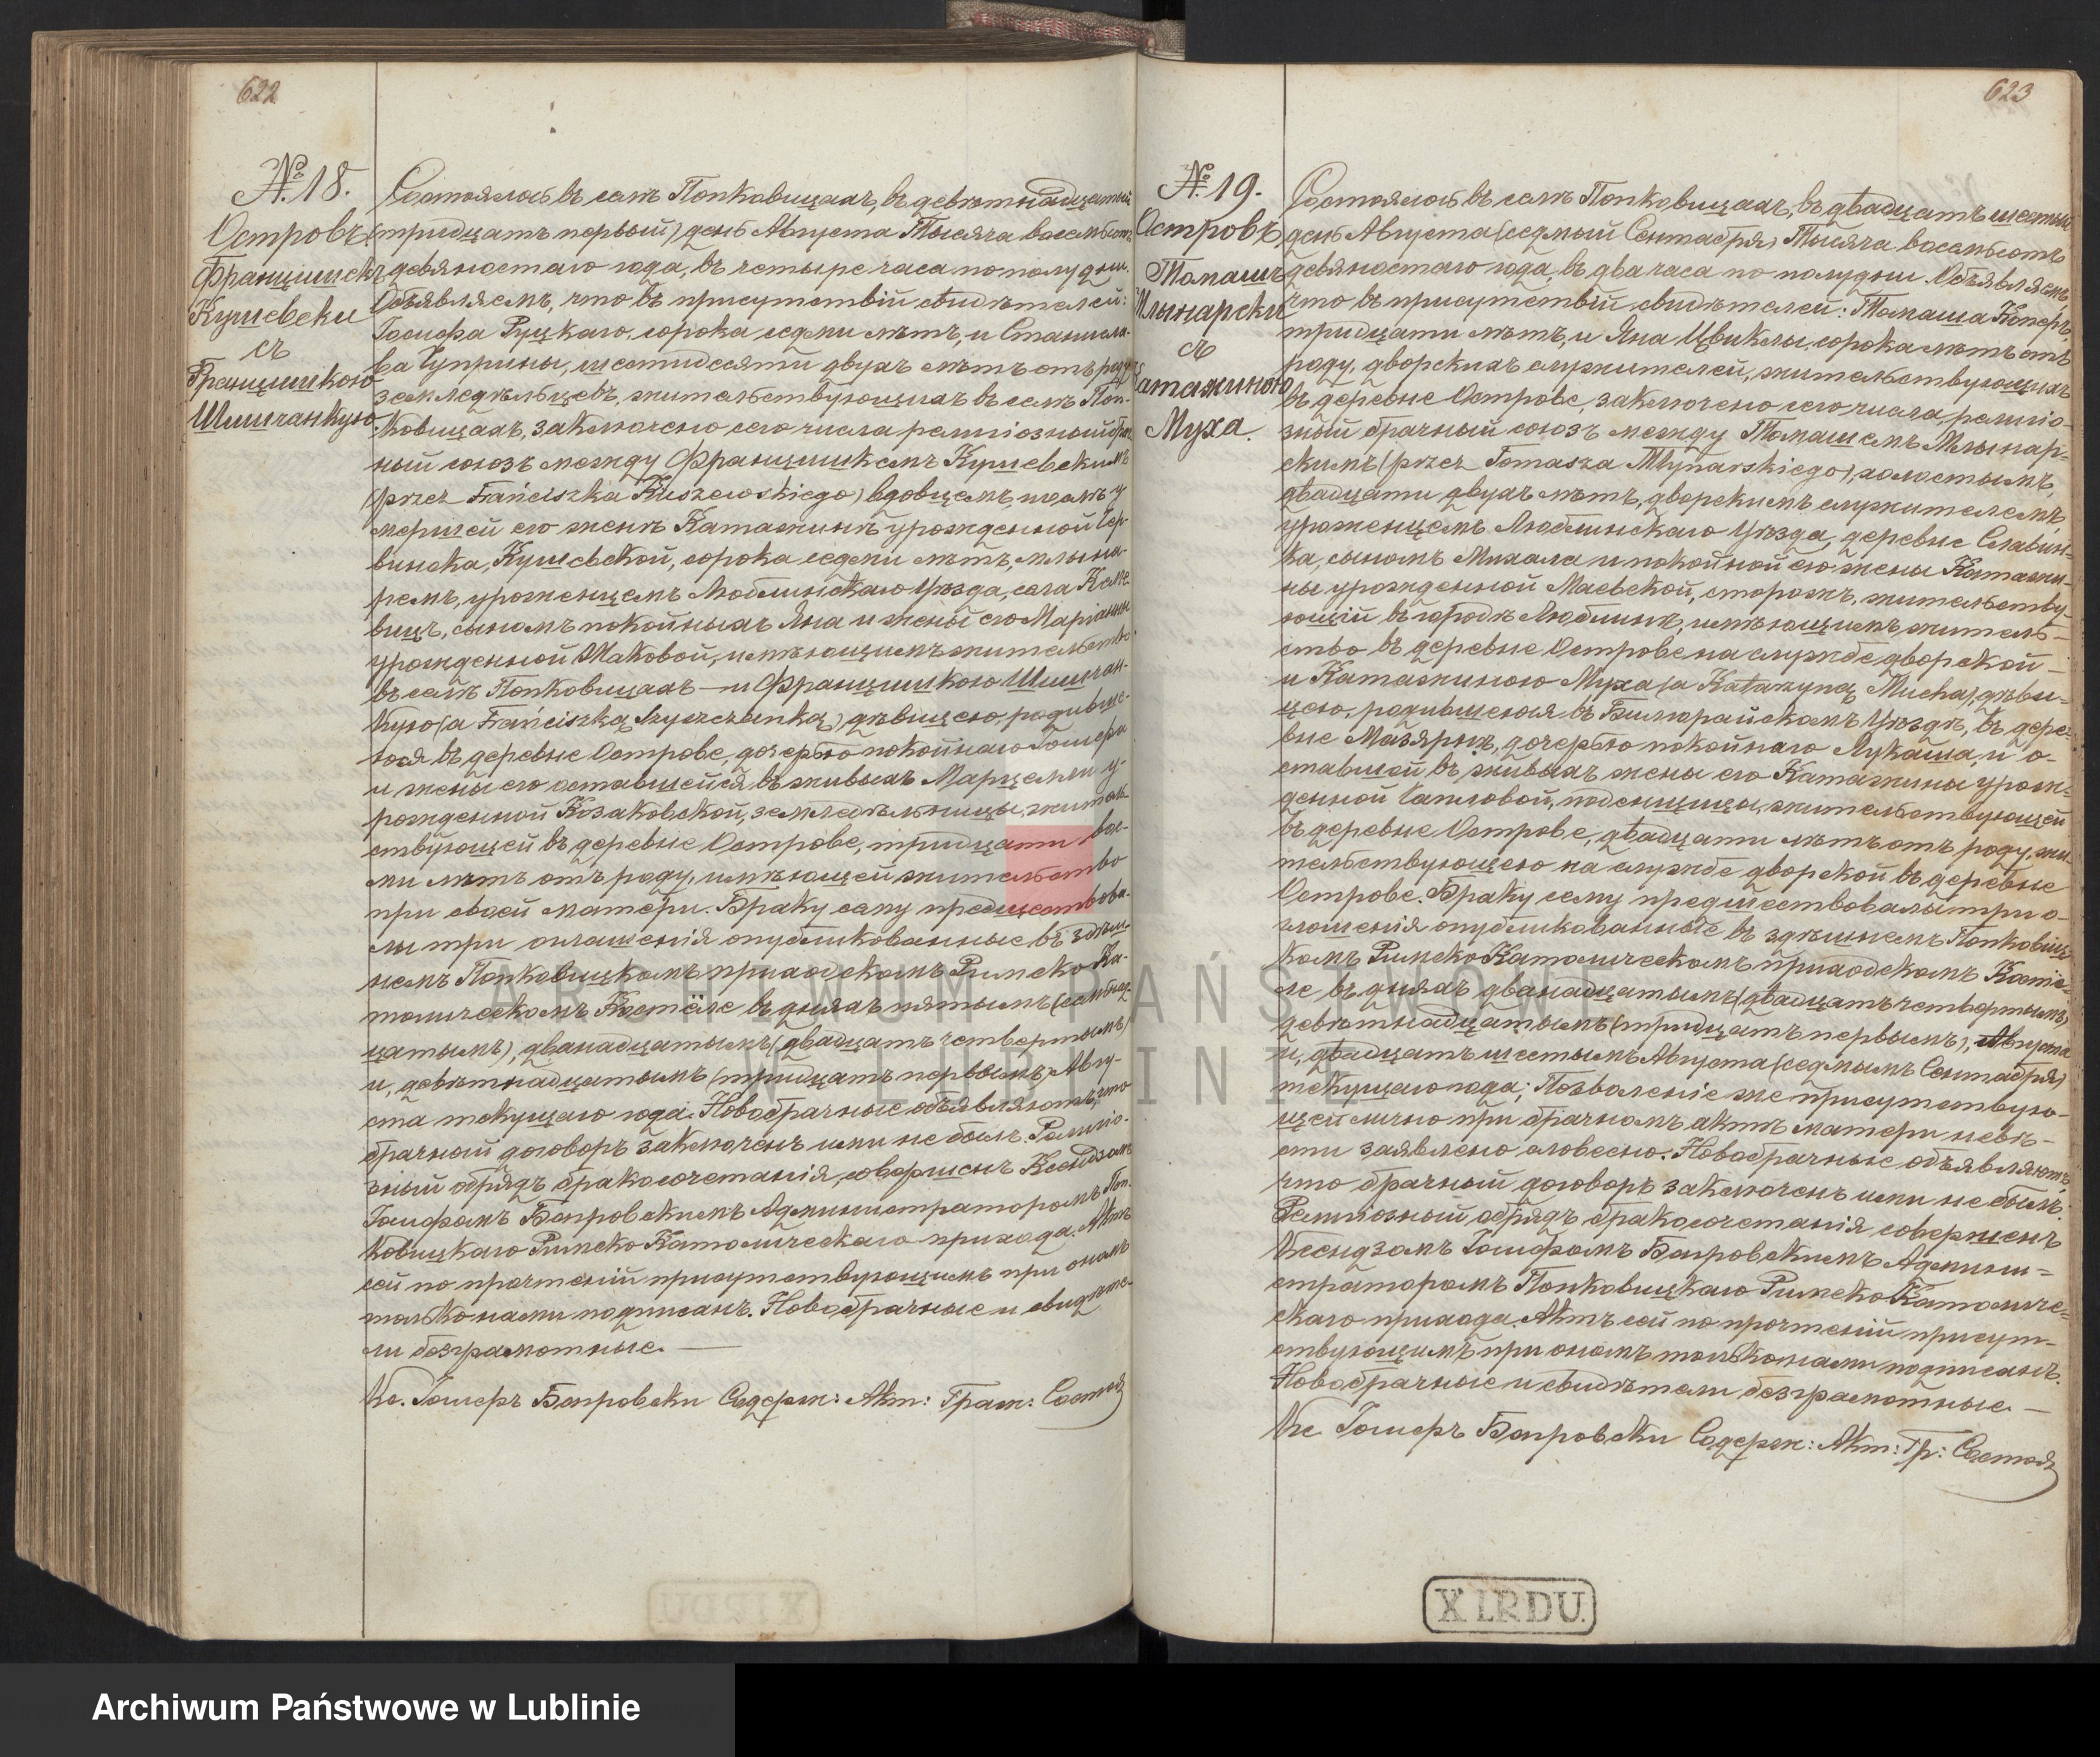 622
№ 18.
Островъ
Францишекъ
Кушевски
съ
Францишкою
Шишчанкую.
Состоялось въ селѣ Попковицахъ, въ девятнадцатый
(тридцать первый) день Августа Тысяча восемьсотъ
девяностаго года, въ четыре часа по полудни.
Объявляемъ, что въ присутствіи свидѣтелей:
Іосифа Руцкаго, сорока седми лѣтъ, и Станисла-
ва Чуприны, шестидесяти двухъ лѣтъ отъ роду
земледѣльцевъ, жительствующихъ въ селѣ Поп-
ковицахъ, заключено сего числа религіозный брач-
ный союзъ между Францишкемъ Кушевскимъ
(przez Franciszka Kuszewskiego) вдовцемъ, по у-
мершей его женѣ Катажинѣ урожденной Чер-
винска, Кушевской, сорока седми лѣтъ, млына-
ремъ, уроженцемъ Люблинскаго Уѣзда, села
сыномъ покойныхъ Яна и жены его Маріанны
урожденной Маковой, имѣющимъ жительство
въ селѣ Попковицахъ — и Францишкою Шишчан-
кую (a Franciszką Szyszczanką) дѣвицею, родивше-
юся въ деревне Острове, дочерью покойнаго Іосифа
и жены его оставшейся въ живыхъ Марцеллы у-
рожденной Козаковской, земледѣльницы, житель-
ствующей въ деревне Острове, тридцати вось-
ми лѣтъ отъ роду, имѣющей жительство
при своей матери. Браку сему предшествова-
лы три оглашенія опубликованные въ здѣш-
немъ Попковицкомъ приходскомъ Римско Ка-
толическомъ Костёле въ дняхъ пятымъ (семнад-
цатымъ), двѣнадцатымъ (двадцать четвертымъ)
и, девятнадцатымъ (тридцать первымъ) Авгу-
ста текущаго года. Новобрачные объявляютъ, что
брачный договоръ заключенъ ими не былъ. Религіо-
зный обрядъ бракосочетанія, совершенъ Ксендзомъ
Іосифомъ Боцровскимъ Администраторомъ Поп-
ковицкаго Римско Католическаго прихода. Актъ
сей по прочтеніи присутствующимъ при ономъ
только нами подписанъ. Новобрачные и свидѣте-
ли безграмотные. —
Кс. Іосифъ Содерж: Акт: Граж: Состоя
623
№ 19.
Островъ
Томашъ
Млынарски
съ
Катажиною
Муха.
Состоялось въ селѣ Попковицахъ, въ двадцать шестый
день Августа (седмый Сентября) Тысяча восемьсотъ
девяностаго года, въ два часа по полудни. Объявляемъ
что въ присутствіи свидѣтелей: Томаша Коперъ,
тридцати лѣтъ, и Яна Цвиклы, сорока лѣтъ отъ
роду, дворскихъ служителей, жительствующихъ
въ деревне Острове, заключено сего числа, религіо-
зный брачный союзъ между Томашемъ Млынар-
скимъ (przez Tomasza Młynarskiego), холостымъ,
двадцати двухъ лѣтъ, дворскимъ служителемъ,
уроженцемъ Люблинскаго Уѣзда, деревне Славин-
ка, сыномъ Михала и покойной его жены Катажи-
ны урожденной Маевской, сторожъ, жительству-
ющій въ городѣ Люблинѣ, имѣющимъ житель-
ство въ деревне Острове на службе дворской —
и Катажиною Муха (a Katarzyną Mucha), дѣви-
цею, родившеюся въ Билгорайскомъ Уѣздѣ, въ дере-
вне Мазярнѣ, дочерью покойнаго Лукаша, и о-
ставшей въ живыхъ жены его Катажины урож-
денной подсницы, жительствующей
въ деревне Острове, двадцати лѣтъ отъ роду, жи-
тельствующею на службе дворской въ деревне
Острове. Браку сему предшествовалы три о-
глошенія опубликованные въ здѣшнемъ Попковиц-
комъ Римско Католическомъ приходскомъ Костё-
ле въ дняхъ двѣнадцатымъ (двадцать четвертымъ)
девятнадцатымъ (тридцать первымъ), Августа
и, двадцать шестымъ Августа (седмымъ Сентября)
текущаго года; Позволеніе же присутствую-
щей лично при брачномъ актѣ матери невѣ-
сты заявлено словесно. Новобрачные объявляютъ
что брачный договоръ заключенъ ими не былъ.
Религіозный обрядъ бракосочетанія совершенъ
Ксендзомъ Іосифомъ Боцровскимъ Админи-
страторомъ Попковицкаго Римско Католиче-
скаго прихода. Актъ сей по прочтеніи присут-
ствующимъ при ономъ только нами подписанъ.
Новобрачные и свидѣтели безграмотные. —
Кс Іосифъ Содерж: Акт: Гр: Состоя
X LRDU.
ARCHIWUM PAŃSTWOWE
W LUBLINIE
Archiwum Państwowe w Lublinie